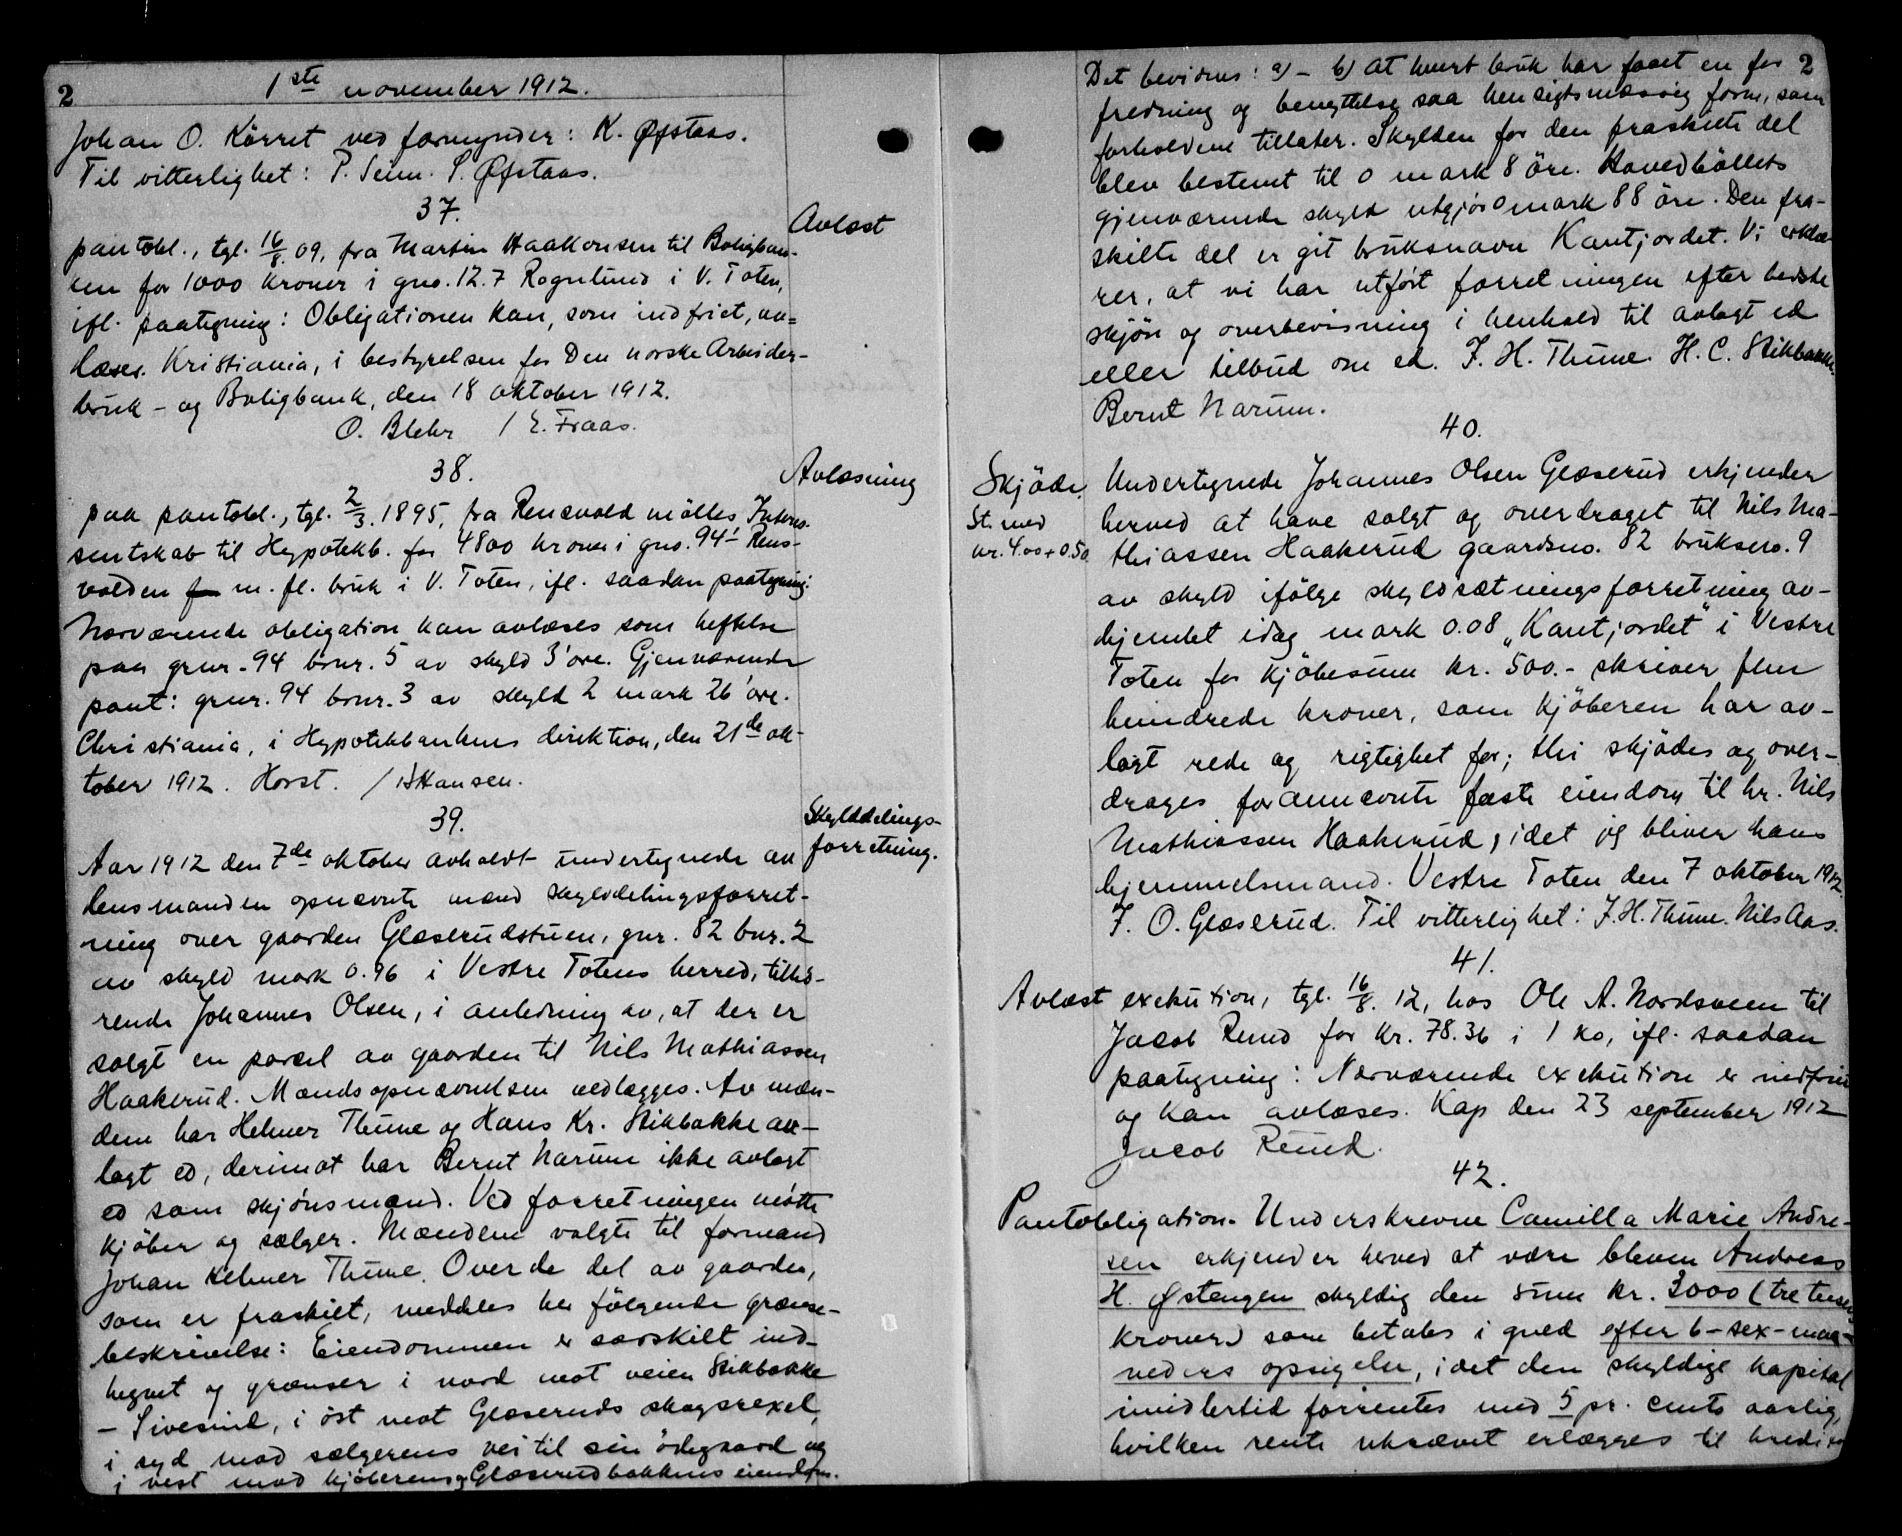 2
1ste november 1912.
Johan O. Körret ved formynder: K. Øfstaas.
Til vitterlighet: P. Seim. S. Øfstaas.
37.
Avlæst
pantobl., tgl. 16/8. 09, fra Martin Haakonsen til Boligban-
ken for 1000 kroner i gno. 12.7 Rognlund i V. Toten,
ifl. paategning: Obligationen kan, som indfriet, av=
læses. Kristiania, i bestyrelsen for Den norske Arbeider-
bruk- og Boligbank, den 18 oktober 1912.
O. Blehr / E. Fraas.
38.
Avlæsning
paa pantobl., tgl. 2/3. 1895, fra Rensvold mölles Interes-
sentskab til Hypotekb. for 4800 kroner i gno. 94¹ Rens-
volden m. fl. bruk i V. Toten, ifl. saadan paategning:
Nærværende obligation kan avlæses som heftelse
paa grnr. 94 brnr. 5 av skyld 3 øre. Gjenværende
pant: grnr. 94 brnr. 3 av skyld 2 mark 26 øre.
Christiania, i Hypotekbankens direktion, den 21de ok-
tober 1912. Horst. / Hansen.
39.
Skylddelings-
forretning.
Aar 1912 den 7de oktober avholdt undertegnede av
lensmanden opnævnte mænd skylddelingsforret-
ning over gaarden Glæserudstuen, gnr. 82 bnr. 2
av skyld mark 0.96 i Vestre Totens herred, tilhö-
rende Johannes Olsen, i anledning av, at der er
solgt en parcel av gaarden til Nils Mathiassen
Haakerud. Mændsopnævnelsen vedlægges. Av mæn-
dene har Helmer Thune og Hans Kr. Stikbakke av-
lagt ed, derimot har Bernt Narum ikke avlagt
ed som skjönsmand. Ved forretningen mötte
kjöber og sælger. Mændene valgte til formand
Johan Helmer Thune. Over de del av gaarden,
som er fraskilt, meddeles her følgende grænse-
beskrivelse: Eiendommen er særskilt ind-
hegnet og grænser i nord mot veien Stikbakke
- Sivesind, i öst mot Glæseruds skogsrexel,
i syd mod sælgerens vei til sin ödegaard og
i vest mod kjöberens og Glæserudbakkens eiendom.
2
Det bevidnes: a) - b) at hvert bruk har faaet en for
fredning og benyttelse saa hensigtsmæssig form, som
forholdene tillater. Skylden for den fraskilte del
blev bestemt til 0 mark 8 öre. Hovedböllets
gjenværende skyld utgjör 0 mark 88 öre. Den fra-
skilte del er git bruksnavn Kantjordet. Vi erklæ-
rer, at vi har utfört forretningen efter bedste
skjön og overbevisning i henhold til avlagt ed
eller tilbud om ed. J. H. Thune. H. C. Stikbakke.
Bernt Narum.
40.
Skjöde.
St. med
kr. 4.00 + 0.50
Undertegnede Johannes Olsen Glæserud erkjender
herved at have solgt og overdraget til Nils Ma-
thiassen Haakerud gaardsno. 82 bruksno. 9
av skyld ifölge skyldsætningsforretning av-
hjemlet idag mark 0.08 "Kantjordet" i Vestre
Toten for kjöbesum kr. 500.- skriver fem
hundrede kroner, som kjöberen har av-
lagt rede og rigtighet for; thi skjödes og over-
drages forannævnte faste eiendom til hr. Nils
Mathiassen Haakerud, idet jeg bliver hans
hjemmelsmand. Vestre Toten den 7 oktober 1912.
J. O. Glæserud. Til vitterlighet: J. H. Thune. Nils Aas.
41.
Avlæst exekution, tgl. 16/8. 12, hos Ole A. Nordsveen til
Jacob Rund for kr. 78.36 i 1 ko, ifl. saadan
paategning: Nærværende exekution er indfriet
og kan avlæses. Kap den 23 september 1912
Jacob Rund.
42.
Pantobligation. Underskrevne Camilla Marie Andre-
sen erkjender herved at være bleven Andreas
H. Østengen skyldig den sum kr. 3000 (tre tusen
kroner) som betales i gjæld efter 6-sex-maa-
neders opsigelse, idet den skyldige kapital
imidlertid forrentes med 5 pr. cents aarlig,
hvilken rente ukrævet erlægges til kreditor